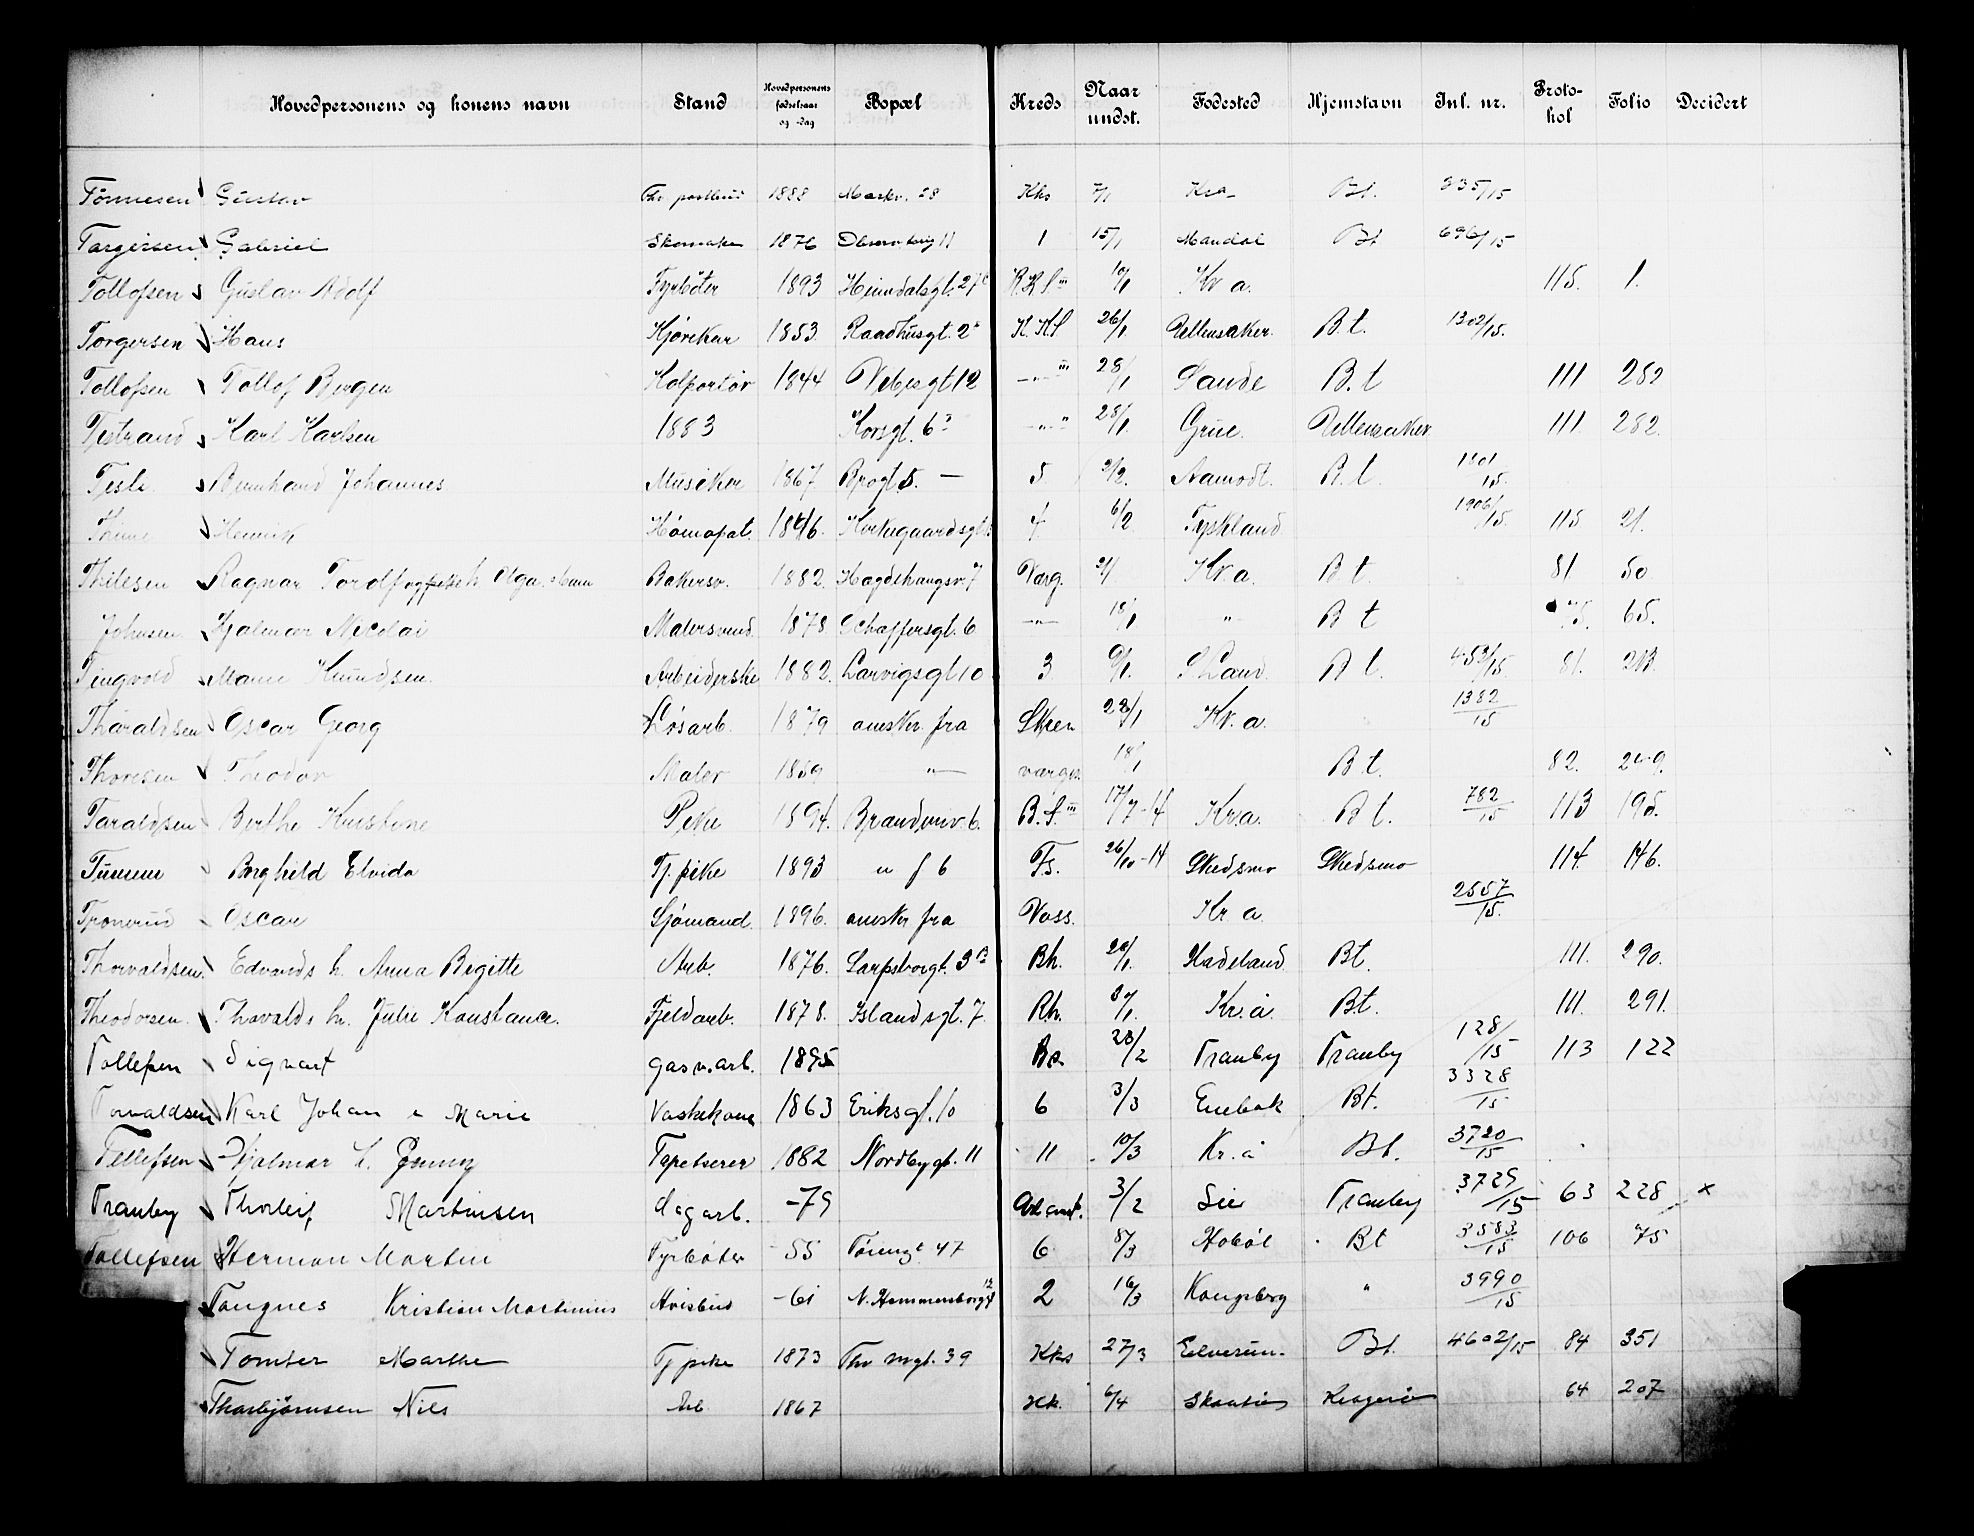 Hovedpersonens og konens navn Stand Hovedpersonens fødselsaar og -dag Bopæl Kreds Naar undst. Fødested Hjemstavn Inl. nr. Protokol Folio Decidert
Tönnesen Gustav Thv postbud 1888 Markv. 28 Kks 7/1 Kra Bt. 235/15
Torgersen Gabriel Skomaker 1876 Observatorig 11 1 15/1 Mandal Bt 696/15
Tollofsen Gustav Adolf Fyrbøter 1893 Heimdalsgt. 27 c 10/1 Kr a. 115. 1.
Torgersen Hans Kjørekar 1853 Raadhusgt. 2 26/1 Ullensaker. B.t. 1302/15.
Tollofsen Tollof Bergen Kolportør 1844 Vibesgt 12 —"— III 28/1 Sande B.t 111 282
Testrand Karl Karlsen 1883 Korsgt. 6 —"— " 28/1. Grue. Ullensaker. 111. 282.
Teslo Bernhard Johannes Musiker 1867. Brogt. 5. — 5 2/2. Aamodt. B.t. 1801/15.
Henrik Homøopat. 1846. 4. 6/2 Tyskland 1906/15. 115 21.
Thilesen Ragnar Torolf Olga Bakersv. 1882. 7 Værg. Kr.a. B t. 81. 50
Johnsen Hjalmar Nicolai Malersvend. 1878. Schaffersgt. 6 —"— 18/1 " B t 75. 65.
Tingvold Marie Knundsen. Arbeiderske 1882. Larvigsgt 10 3 9/1. S Land. B t. 453/15 81. 213.
Tharaldsen Oscar Georg Løsarb. 1879 ønsker fra Skien 28/1 Kr. a. 1382/15
Thoresen Theodor Maler 1859 —"— værges. 18/1 B t. 82. 249.
Taraldsen Berthe Kristine Pike 1894. 6. B.S. III 17/7-14 Kr.a. B t. 782/15 113 195.
Tümme Borghild Elvida Tj. pike 1893 u f 6 Fs. 26/10-14 Skedsmo Skedsmo 114. 146.
Tronerud Oscar Sjømand. 1896. ønsker fra Voss. Kr a. 2557/15.
Thorvaldsen. Edvards h. Anna Begitte Arb. 1876. Sarpsborgt. 3 B Bh. 28/1. Hadeland Bt. 111. 290.
Theodorsen. Thovalds h. Julie Konstance. Fjeldarb. 1878. Islandsgt. 7 Rh. Kr.a. Bt. 111. 291.
Tollefsen Sigvart gasv.arb. 1895 28/2 Tranby Tranby 128/15 113 122
Torvaldsen Karl Johan e Marie Vaskekone 1863 Eriksgt. 10 6 3/3 Enebak Bt. 3328/15
Tellefsen Hjalmar h. Jenny Tapetserer 1882 Nordbygt. 11 11 10/3 Kr.a Bt. 3720/15
Tranby Thorleif Martinsen dagarb. -79 3/2 Lier Tranby 3729/15 63 228 x
Tollefsen Herman Martin Fyrbøter -55 Tøiengt 47 6 8/3 Hobøl Bt 3583/15 106 75
Tangnes Kristian Martinius Avisbud -61 N. Hammersborggt 12 2 16/3 Kongsberg " 3990/15
Tomter Marthe Tj pike 1873 Thv mgt. 39 Kks 27/3 Elverum. Bt. 4602/15 84 351
Thorbjørnsen Nils Arb 1867 Hk. 6/4 Skaatø Kragerø 64 207